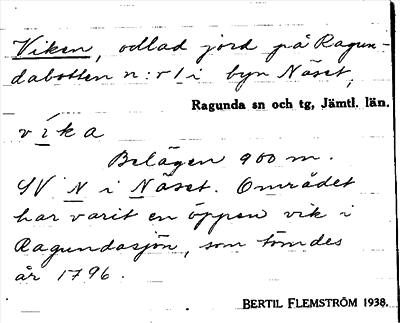 Viken, odlad jord på Ragun-
dabotten n:r 1 i byn Näset,
Ragunda sn och tg, Jämtl. län.
vika
Belägen 900 m.
SV N i Näset. Området
har varit en öppen vik i
Ragundasjön, som tömdes
år 1796.
BERTIL FLEMSTRÖM 1938.